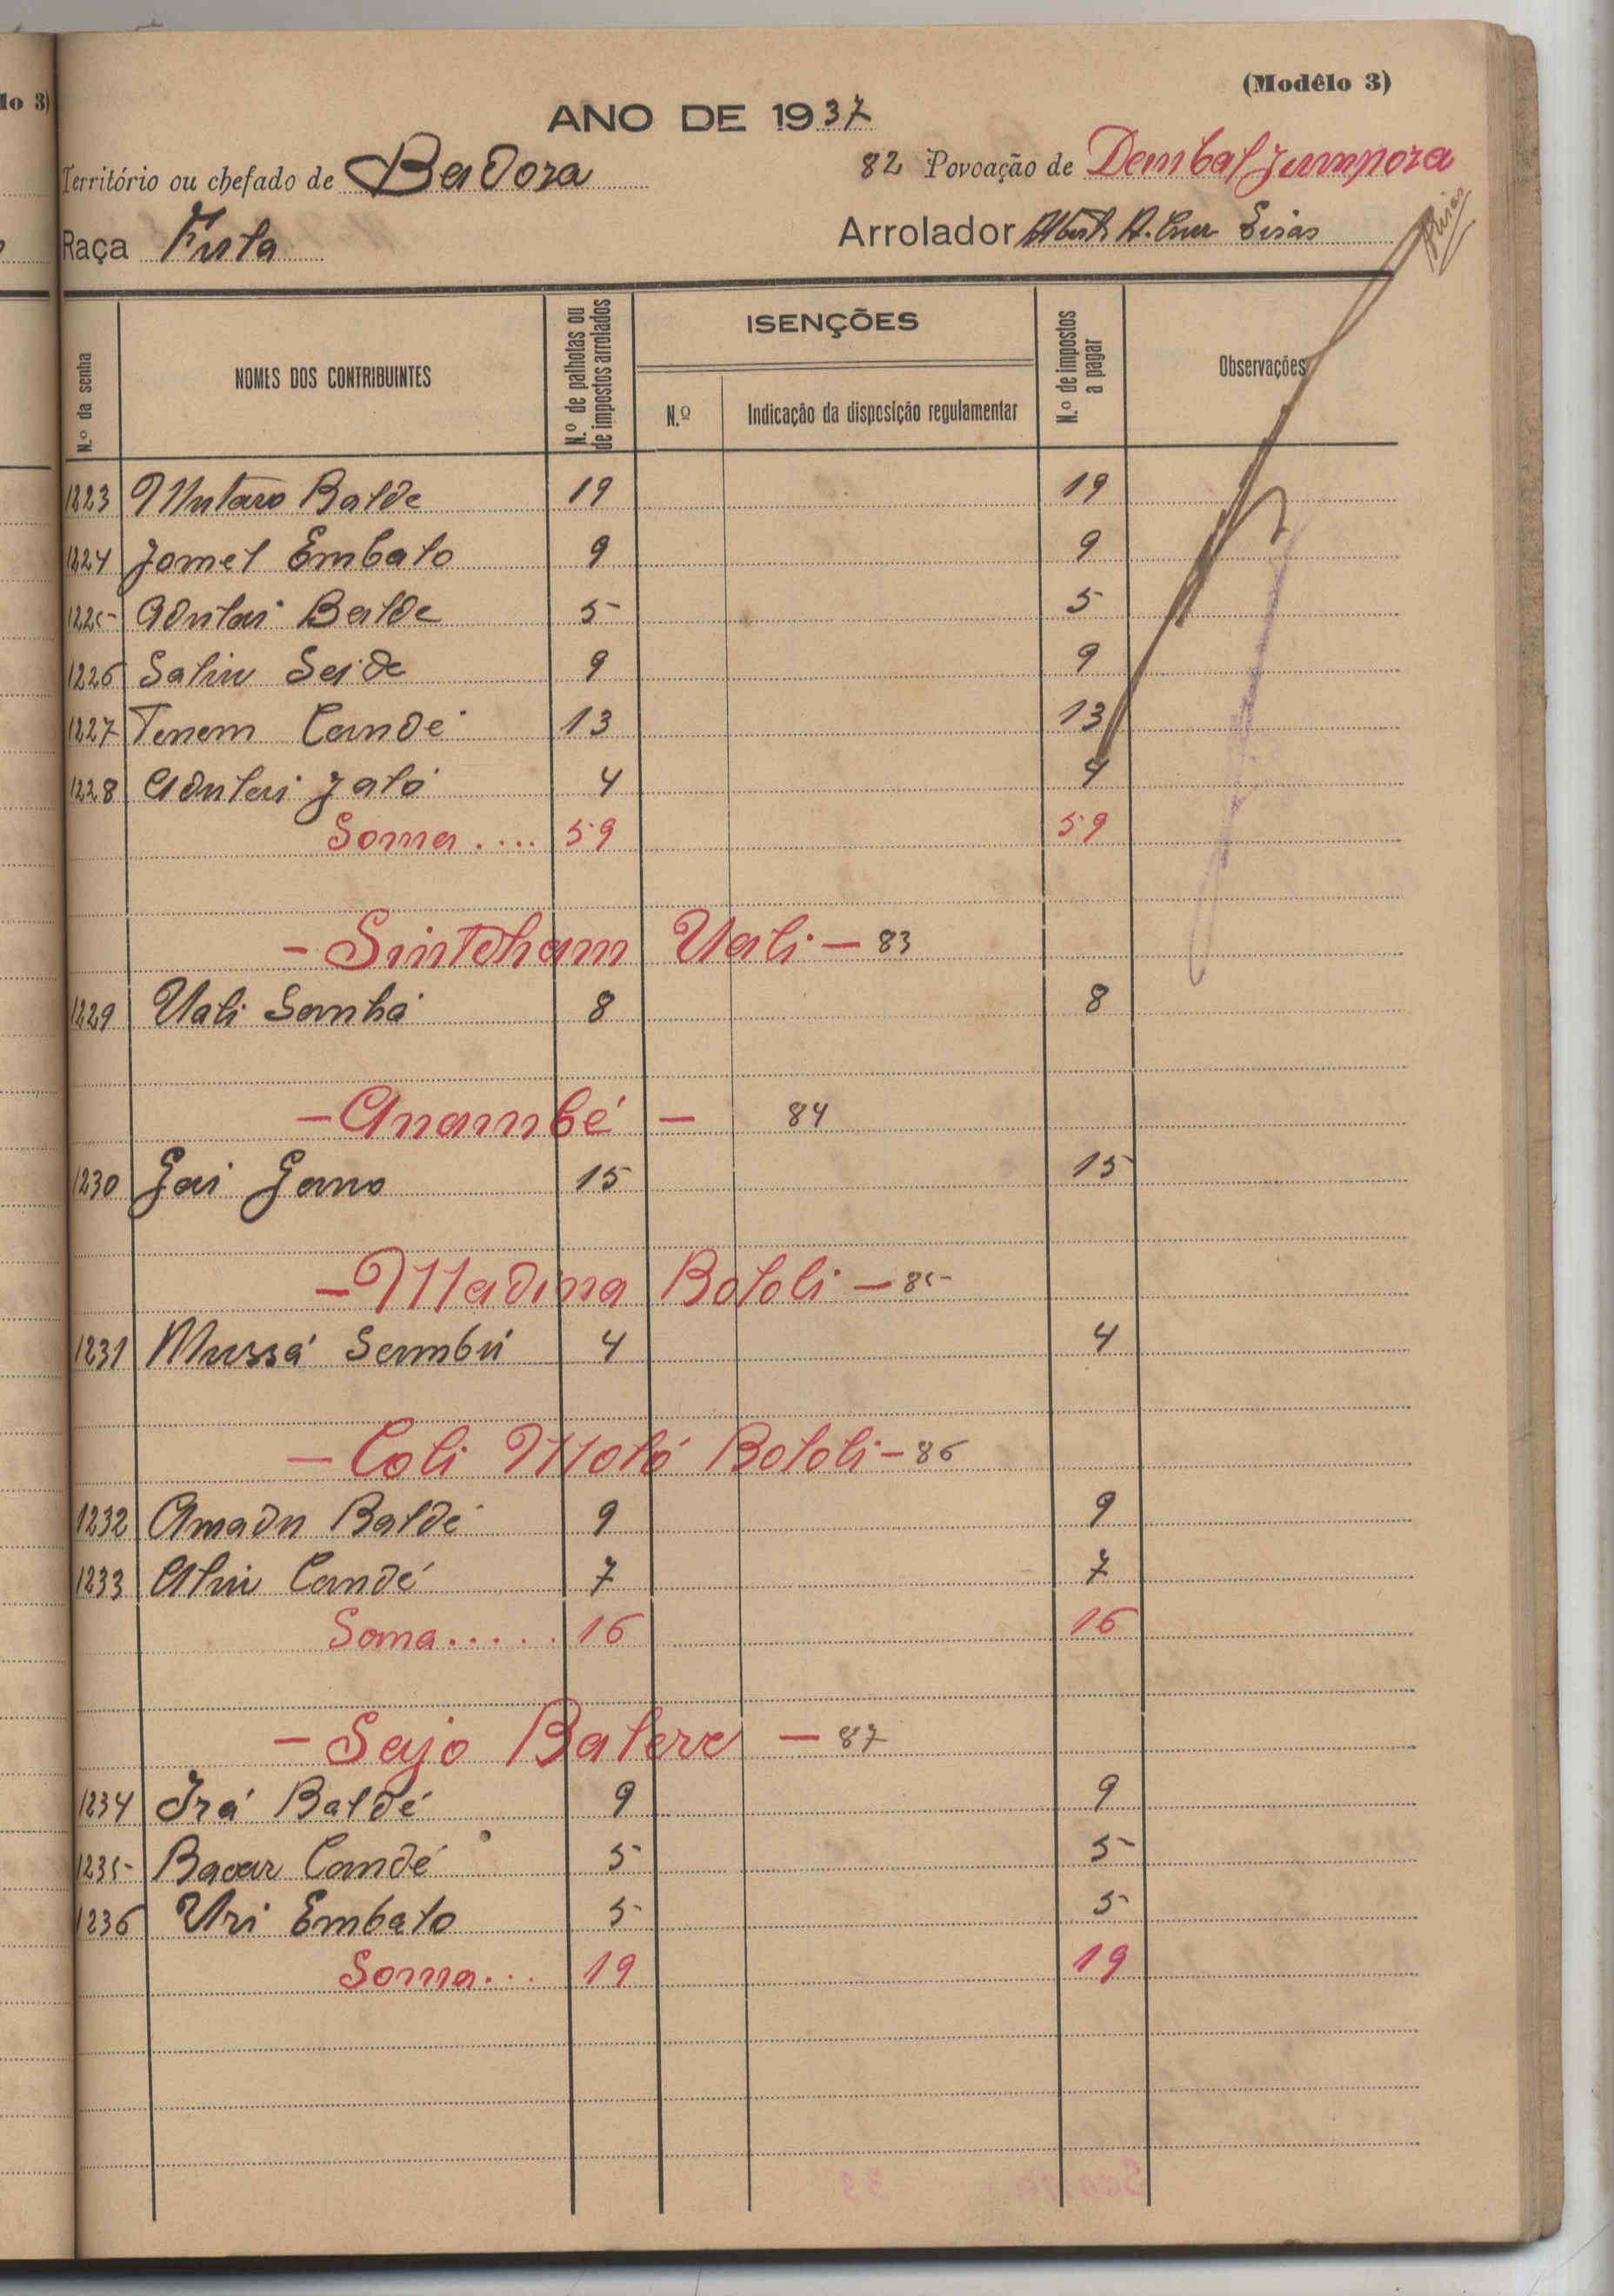 lo 3)
(Modêlo 3)
ANO DE 1937
Território ou chefado de Badora
82 Povoação de Dembal Jumpora
Raça Fula
Arrolador A. Eiras
N.º da senha
NOMES DOS CONTRIBUINTES
N.º de palhotas ou de impostos arrolados
ISENÇÕES
N.º
Indicação da disposição regulamentar
N.º de impostos a pagar
Observações
1223 Mutaro Balde 19 19
1224 Jomel Embalo 9 9
1225 Adulai Balde 5 5
1226 Saliu Seide 9 9
1227 Tenem Candé 13 13
1228 Adulai Jaló 4 4
Soma.... 59 59
- Sintcham Uali - 83
1229 Uali Sambá 8 8
- Anambé - 84
1230 Gai Gano 15 15
- Madina Bololi - 85
1231 Mussá Sambú 4 4
- Coli Moló Bololi - 86
1232 Amadu Baldé 9 9
1233 Aliu Candé 7 7
Soma..... 16 16
- Sejo Balere - 87
1234 Irá Baldé 9 9
1235 Bacar Candé 5 5
1236 Uri Embalo 5 5
Soma... 19 19